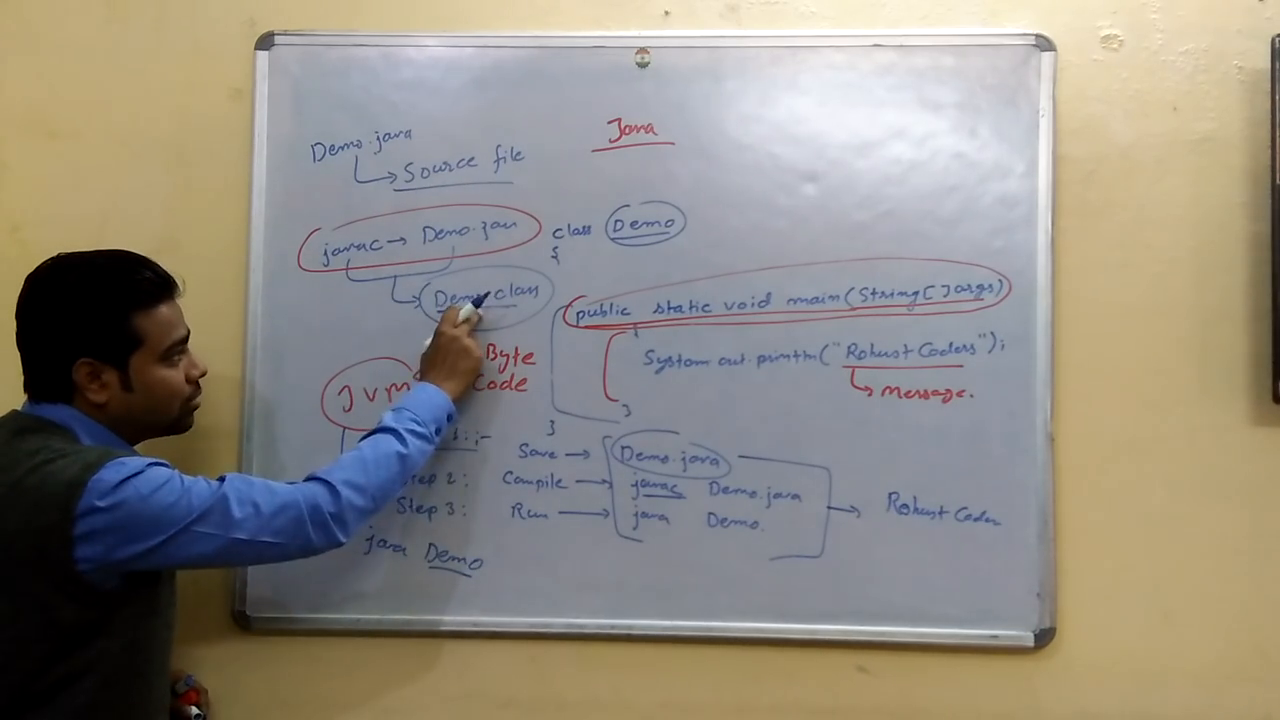 Java
Demo.java
Source file
javac → Demo.java
Demo.class
Byte
Code
JVM
class Demo
{
public static void main(String[] args)
{
System.out.println("Robust Coders");
Message.
}
}
1:- Save → Demo.java
Step 2: Compile → javac Demo.java
Step 3: Run → java Demo.
→ Robust Coders
java Demo